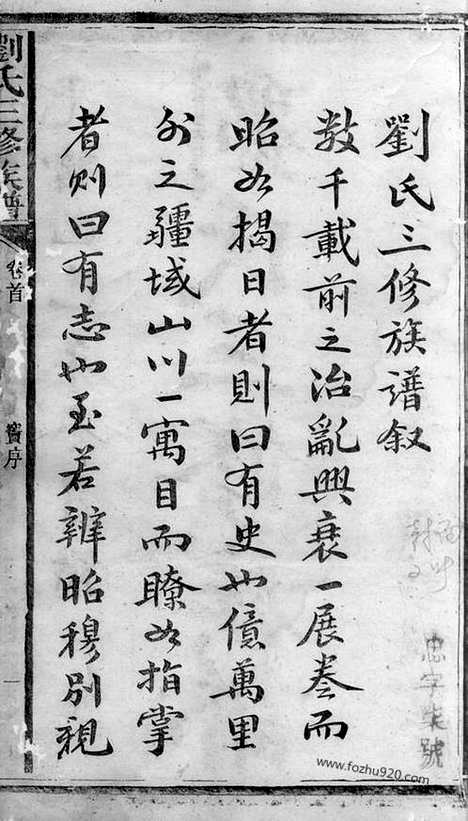 劉氏三修族譜叙
数千載前之治亂興衰一展卷而
昭如揭日者則曰有史也億萬里
外之疆域山川一寓目而瞭如指掌
者則曰有志也至若辨昭穆別親
劉氏三修族譜
卷首
序
一
忠字 號
www.fozhu920.com